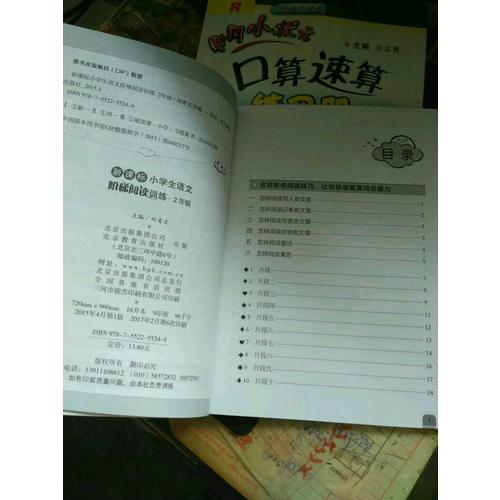 R
黄冈小状元
主编 万志勇
口算速算
练习册
图书在版编目（CIP）数据
新课标小学生语文阶梯阅读训练. 2年级 / 刘青文主编
出版社, 2015.4
ISBN 978-7-5522-5524-9
中国版本图书馆CIP数据核字（2015）第049217号
新课标 小学生语文
阶梯阅读训练·2年级
主编/刘青文
北京出版集团公司 出版
北京教育出版社
（北京北三环中路6号）
邮政编码：100120
网址：www.bph.com.cn
北京出版集团总发行
全国各地书店经销
三河市骏杰印刷有限公司印刷
720mm×960mm 16开本 9印张 96千字
2015年4月第1版 2017年2月第6次印刷
ISBN 978-7-5522-5524-9
定价：13.80元
版权所有 翻印必究
电话：13911108612 (010) 58572832 58572393
如有印装质量问题，由本社负责调换
目录
名师教你阅读技巧，让你快速提高阅读能力
一 怎样阅读写人类文章 1
二 怎样阅读记事类文章
三 怎样阅读写景类文章
四 怎样阅读状物类文章
五 怎样阅读童话
六 怎样阅读寓言
1 片段一
2 片段二
3 片段三
4 片段四
5 片段五
6 片段六
7 片段七
8 片段八
9 片段九
10 片段十 18
1